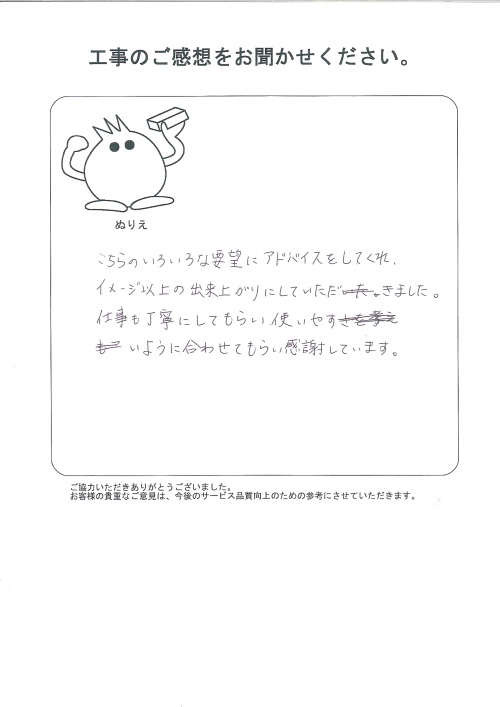 工事のご感想をお聞かせください。
ぬりえ
こちらのいろいろな要望にアドバイスをしてくれ、
イメージ以上の出来上がりにしていただきました。
仕事も丁寧にしてもらい使いやす
いように合わせてもらい感謝しています。
ご協力いただきありがとうございました。
お客様の貴重なご意見は、今後のサービス品質向上のための参考にさせていただきます。